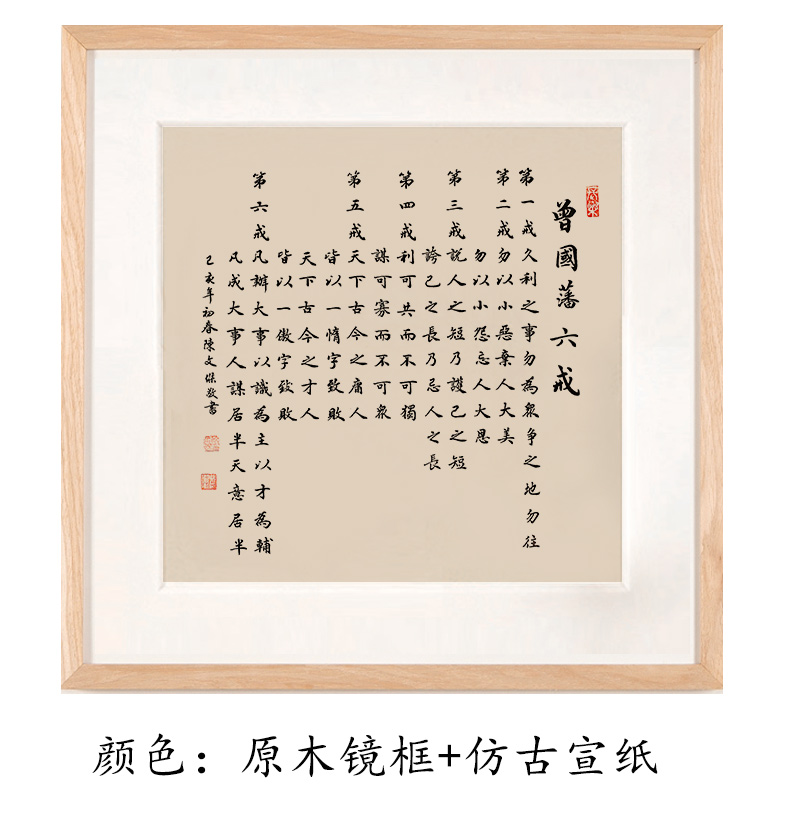 曾國藩六戒
第一戒久利之事勿為眾争之地勿往
第二戒勿以小惡棄人大美
勿以小怨忘人大恩
第三戒說人之短乃護己之短
誇己之長乃忌人之長
第四戒利可共而不可獨
謀可寡而不可眾
第五戒天下古今之庸人
皆以一惰字致敗
天下古今之才人
皆以一傲字致敗
第六戒凡辦大事以識為主以才為輔
凡成大事人謀居半天意居半
己亥年初春陳文傑敬書
颜色：原木镜框+仿古宣纸